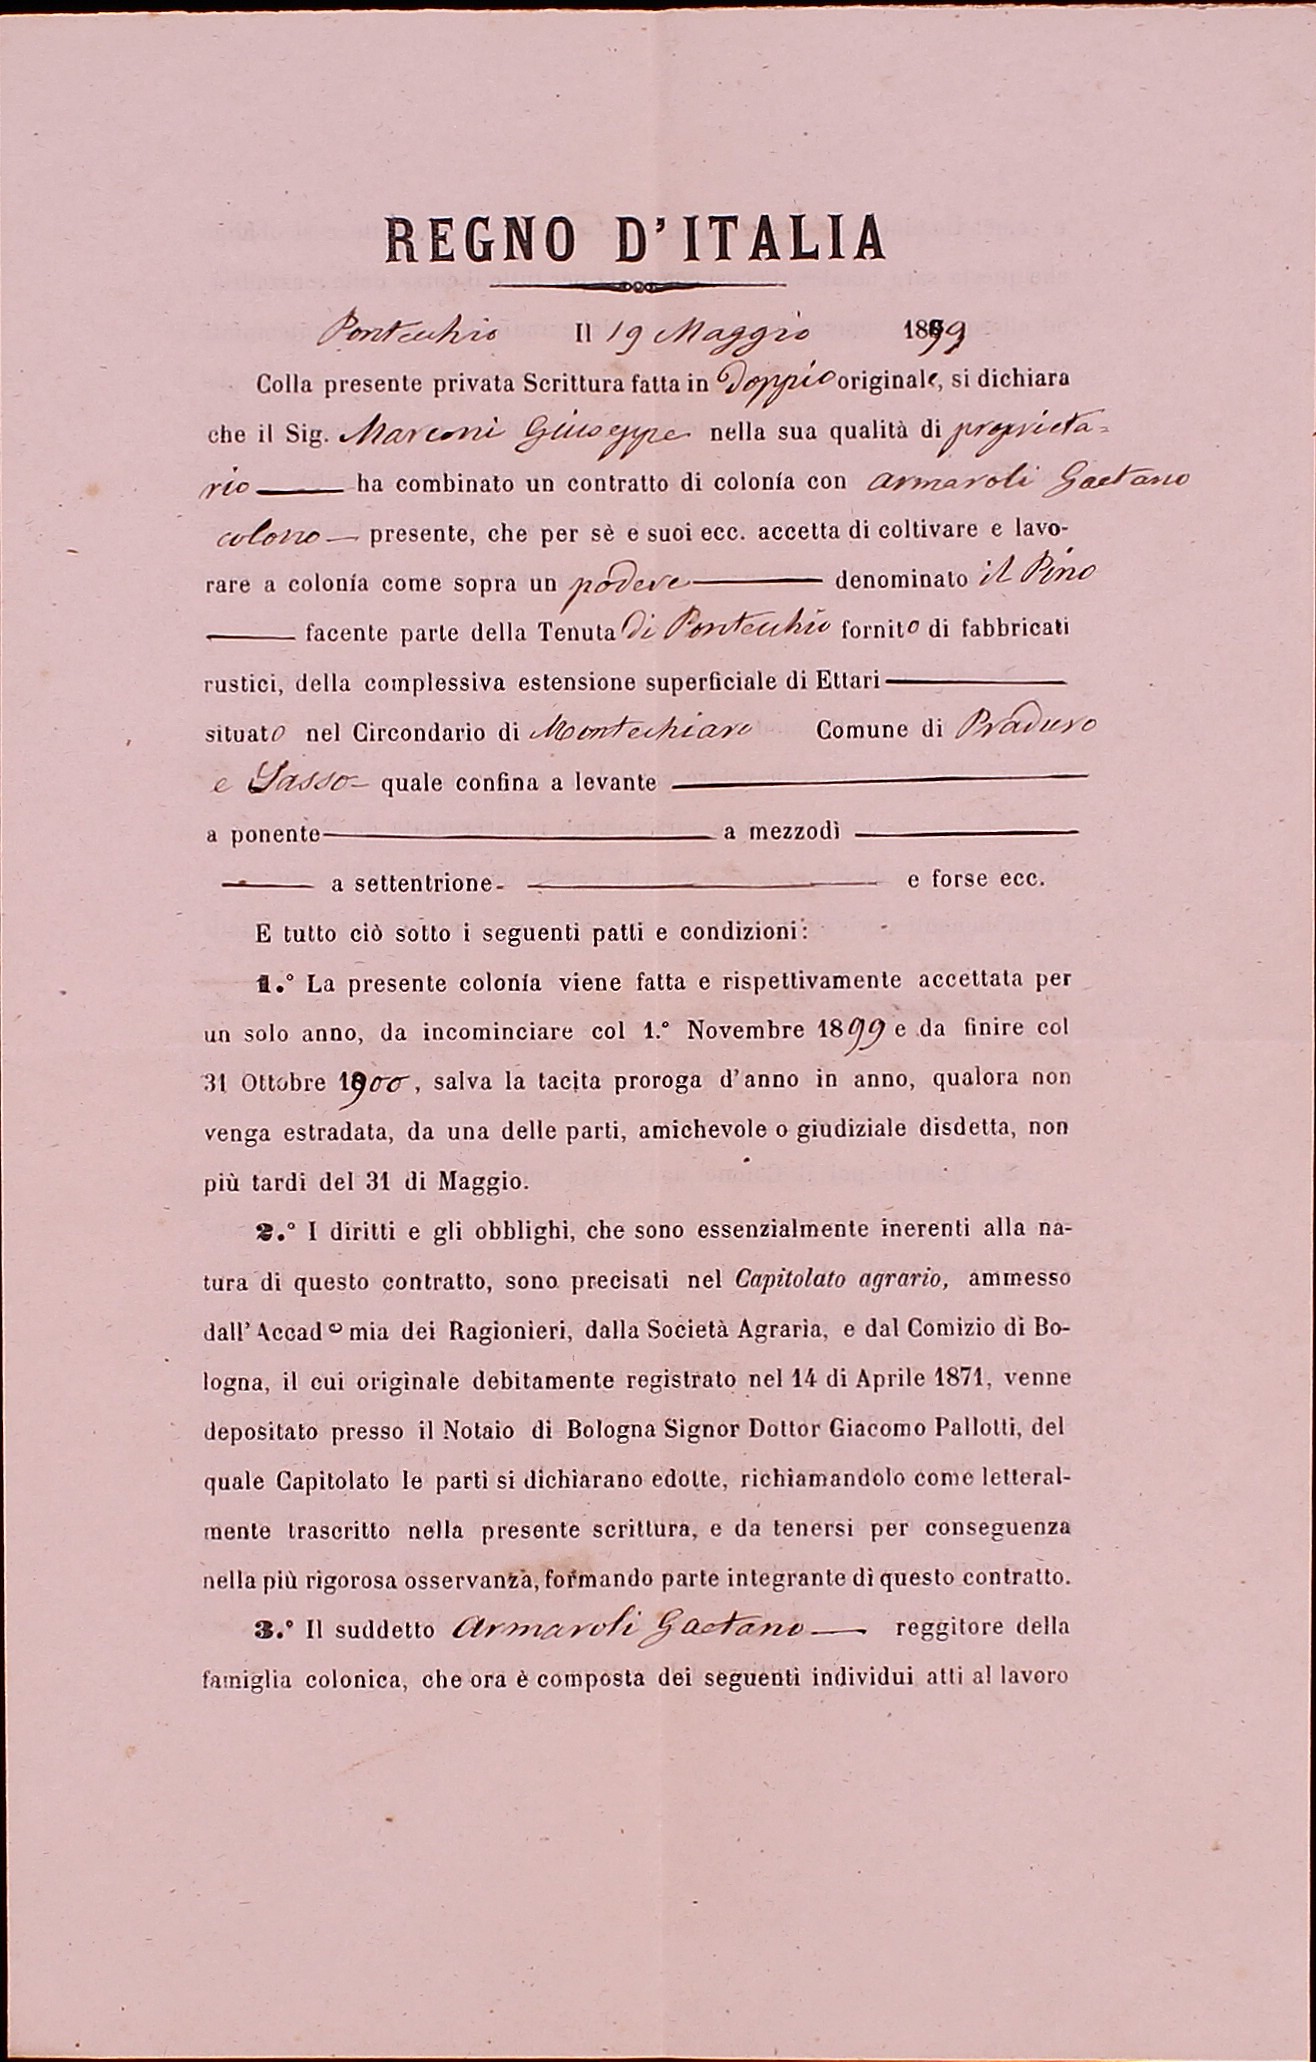 REGNO D'ITALIA
Pontecchio Il 19 Maggio 1899
Colla presente privata Scrittura fatta in Doppio originale, si dichiara
che il Sig. Marconi Giuseppe nella sua qualità di proprieta=
rio — ha combinato un contratto di colonía con Armaroli Gaetano
colono — presente, che per sè e suoi ecc. accetta di coltivare e lavo-
rare a colonía come sopra un podere — denominato il Pino
— facente parte della Tenuta Di Pontecchio fornito di fabbricati
rustici, della complessiva estensione superficiale di Ettari —
situato nel Circondario di Montechiaro Comune di Praduro
e Sasso — quale confina a levante —
a ponente — a mezzodì —
— a settentrione — e forse ecc.
E tutto ciò sotto i seguenti patti e condizioni:
1.° La presente colonía viene fatta e rispettivamente accettata per
un solo anno, da incominciare col 1.° Novembre 1899 e da finire col
31 Ottobre 1900, salva la tacita proroga d'anno in anno, qualora non
venga estradata, da una delle parti, amichevole o giudiziale disdetta, non
più tardi del 31 di Maggio.
2.° I diritti e gli obblighi, che sono essenzialmente inerenti alla na-
tura di questo contratto, sono precisati nel Capitolato agrario, ammesso
dall'Accademia dei Ragionieri, dalla Società Agraria, e dal Comizio di Bo-
logna, il cui originale debitamente registrato nel 14 di Aprile 1871, venne
depositato presso il Notaio di Bologna Signor Dottor Giacomo Pallotti, del
quale Capitolato le parti si dichiarano edotte, richiamandolo come letteral-
mente trascritto nella presente scrittura, e da tenersi per conseguenza
nella più rigorosa osservanza, formando parte integrante di questo contratto.
3.° Il suddetto Armaroli Gaetano — reggitore della
famiglia colonica, che ora è composta dei seguenti individui atti al lavoro